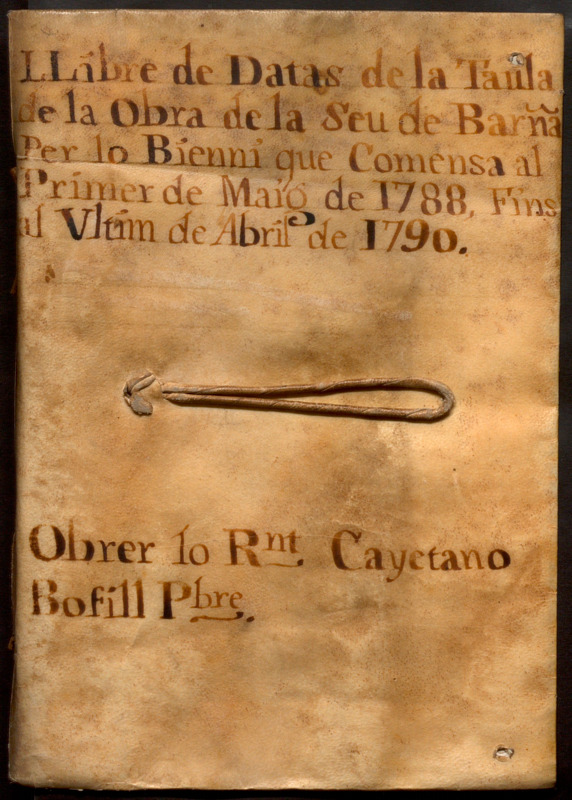 LLibre de Datas de la Taula
de la Obra de la Seu de Barñã
Per lo Bienni que Comensa al
Primer de Maig de 1788, Fins
al Vltim de Abril de 1790.
Obrer lo Rnt. Cayetano
Bofill Pbre.